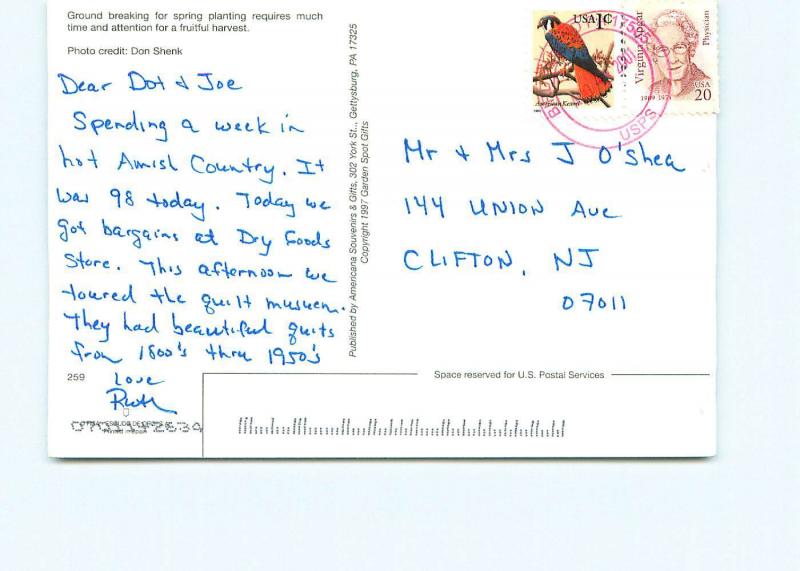 Ground breaking for spring planting requires much
time and attention for a fruitful harvest.
Photo credit: Don Shenk
Dear Dot & Joe
Spending a week in
hot Amish Country. It
was 98 today. Today we
got bargains at Dry Goods
Store. This afternoon we
toured the quilt musuem.
They had beautiful quits
from 1800's thru 1950's
Love
Ruth
259
Published by Americana Souvenirs & Gifts, 302 York St., Gettysburg, PA 17325
Copyright 1997 Garden Spot Gifts
USA 1¢
American Kestrel
Virginia Apgar
Physician
1909-1974
USA
20
USPS
Mr & Mrs J O'Shea
144 UNION Ave
CLIFTON, NJ
07011
Space reserved for U.S. Postal Services